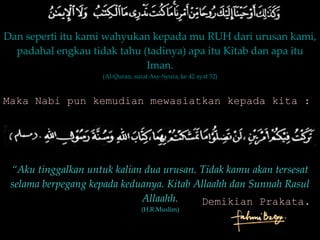 وَكَذَٰلِكَ أَوْحَيْنَا إِلَيْكَ رُوحًا مِنْ أَمْرِنَا مَا كُنْتَ تَدْرِي مَا الْكِتَابُ وَلَا الْإِيمَانُ
Dan seperti itu kami wahyukan kepada mu RUH dari urusan kami,
padahal engkau tidak tahu (tadinya) apa itu Kitab dan apa itu
Iman.
(Al-Quran, surat Asy-Syura, ke 42 ayat 52)
Maka Nabi pun kemudian mewasiatkan kepada kita :
تَرَكْتُ فِيكُمْ أَمْرَيْنِ، لَنْ تَضِلُّوا مَا تَمَسَّكْتُمْ بِهِمَا كِتَابَ اللهِ وَسُنَّةَ رَسُولِهِ
“Aku tinggalkan untuk kalian dua urusan. Tidak kamu akan tersesat
selama berpegang kepada keduanya. Kitab Allaahh dan Sunnah Rasul
Allaahh.
(H.R.Muslim)
Demikian Prakata.